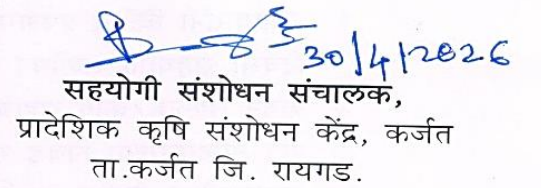 30/4/2026
सहयोगी संशोधन संचालक,
प्रादेशिक कृषि संशोधन केंद्र, कर्जत
ता.कर्जत जि. रायगड.